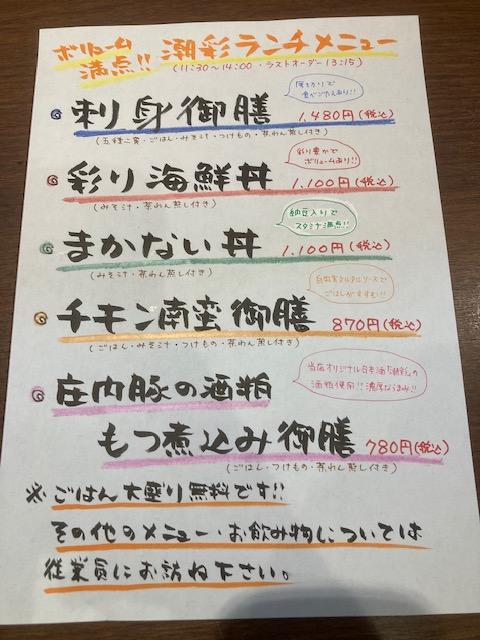 ボリューム満点!! 潮彩ランチメニュー
(11:30~14:00・ラストオーダー13:15)
厚切りで
食べごたえあり!!
刺身御膳 1,480円(税込)
(五種二貫・ごはん・みそ汁・つけもの・茶わん蒸し付き)
彩り豊かで
ボリュームあり!!
彩り海鮮丼 1,100円(税込)
(みそ汁・茶わん蒸し付き)
納豆入りで
スタミナ満点!!
まかない丼 1,100円(税込)
(みそ汁・茶わん蒸し付き)
自家製タルタルソースで
ごはんがすすむ!!
チキン南蛮御膳 870円(税込)
(ごはん・みそ汁・つけもの・茶わん蒸し付き)
当店オリジナル日本酒「潮彩」の
酒粕使用!!濃厚なうまみ!!
庄内豚の酒粕
もつ煮込み御膳 780円(税込)
(ごはん・つけもの・茶わん蒸し付き)
※ごはん大盛り無料です!!
その他のメニュー・お飲み物については
従業員にお訪ね下さい。